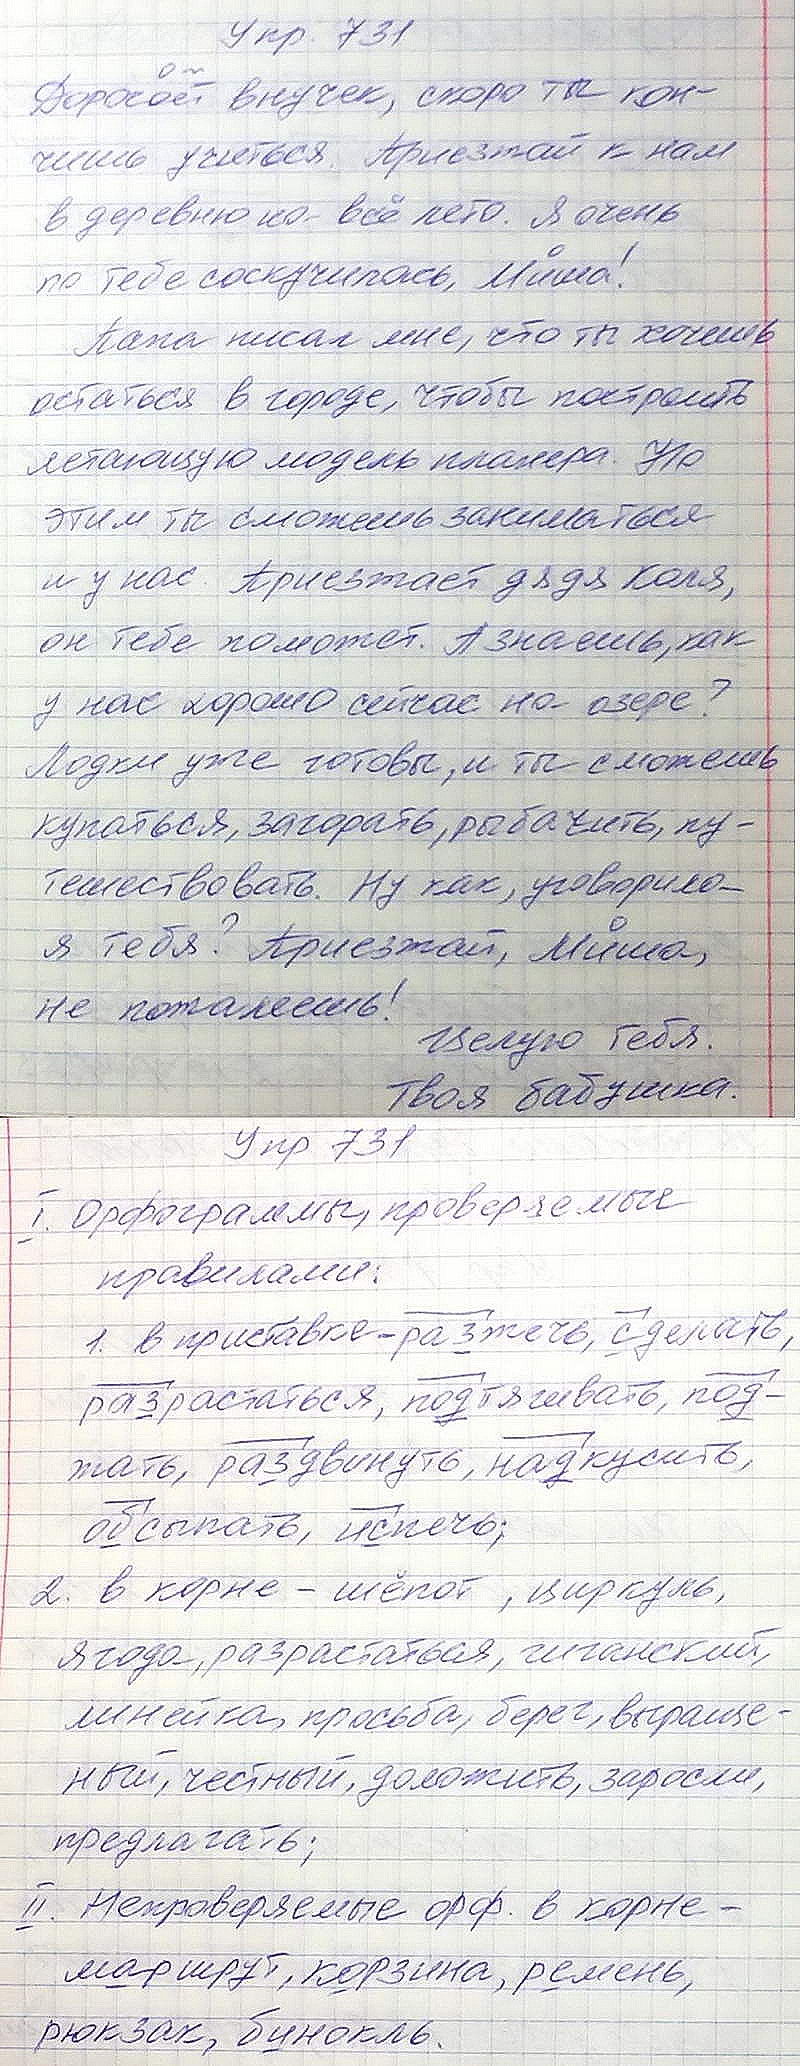 Упр. 731
Дорогой внучек, скоро ты кон-
чишь учиться. Приезжай к нам
в деревню на всё лето. Я очень
по тебе соскучилась, Миша!
Папа писал мне, что ты хочешь
остаться в городе, чтобы построить
летающую модель планера. Но
этим ты сможешь заниматься
и у нас. Приезжает дядя Коля,
он тебе поможет. А знаешь, как
у нас хорошо сейчас на озере?
Лодки уже готовы, и ты сможешь
купаться, загорать, рыбачить, пу-
тешествовать. Ну как, уговорила
я тебя? Приезжай, Миша,
не пожалеешь!
Целую тебя.
Твоя бабушка.
Упр 731
I. Орфограммы, проверяемые
правилами:
1. в приставке - разжечь, сделать,
разрастаться, подтягивать, под-
жать, раздвинуть, надкусить,
обсыпать, испечь;
2. в корне - шёпот, циркуль,
ягода, разрастаться, гиганский,
линейка, просьба, берег, выраще-
ный, честный, доложить, заросли,
предлагать;
II. Непроверяемые орф. в корне -
маршрут, корзина, ремень,
рюкзак, бинокль.